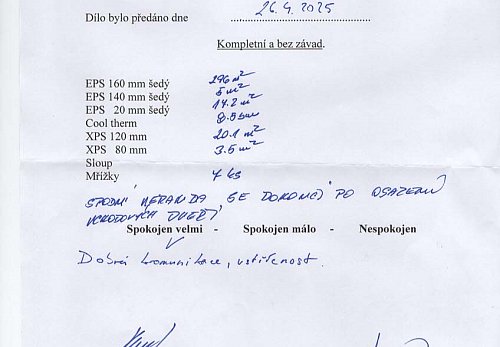 Dílo bylo předáno dne 26.4.2025
Kompletní a bez závad.
EPS 160 mm šedý 296 m²
EPS 140 mm šedý 5 m²
EPS 20 mm šedý 14.2 m²
Cool therm 8.5 bm
XPS 120 mm 20.1 m²
XPS 80 mm 3.5 m²
Sloup
Mřížky 4 ks
SPODNÍ VERANDA, SE DOKONČÍ PO OSAZENÍ
VCHODOVÝCH DVEŘÍ
Spokojen velmi - Spokojen málo - Nespokojen
Dobrá komunikace, vstřícnost.